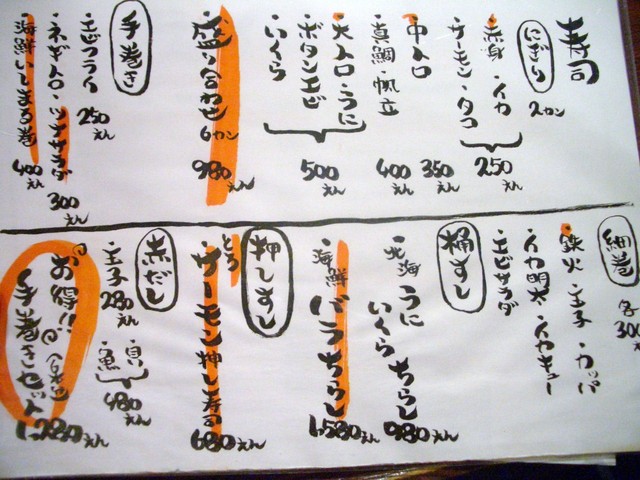 寿司
にぎり 2カン
・赤身・イカ
・サーモン・タコ 250えん
・中トロ 350えん
・真鯛・帆立 400えん
・大トロ・うに
・ボタンエビ
・いくら 500えん
・盛り合わせ 6カン 980えん
手巻き
・エビフライ 250えん
・ネギトロ・ツナサラダ 300えん
・海鮮いしまる巻 400えん
細巻 各300えん
・鉄火・玉子・カッパ
・イカ明太・イカキュー
・エビサラダ
桶すし
・北海うにいくらちらし 980えん
・海鮮バラちらし 1,580えん
押しずし
・とろサーモン押し寿司 680えん
赤だし
・玉子 280えん
・貝・魚 480えん
お得!!
手巻きセット 1,280えん